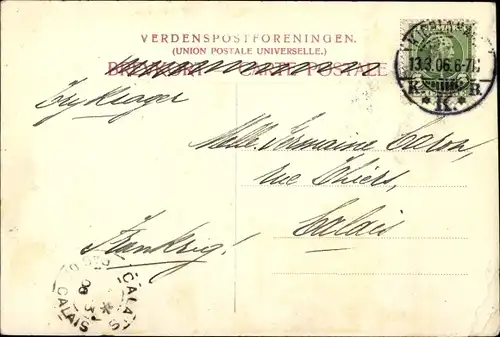 VERDENSPOSTFORENINGEN.
(UNION POSTALE UNIVERSELLE.)
CARTE POSTALE
KJØBENHAVN
13.3.06.6-7E
K. B.
* K. *
Tryksager
Mlle. Germaine Caron,
rue Thiers,
Calais
Frankrig!
CALAIS
CALAIS